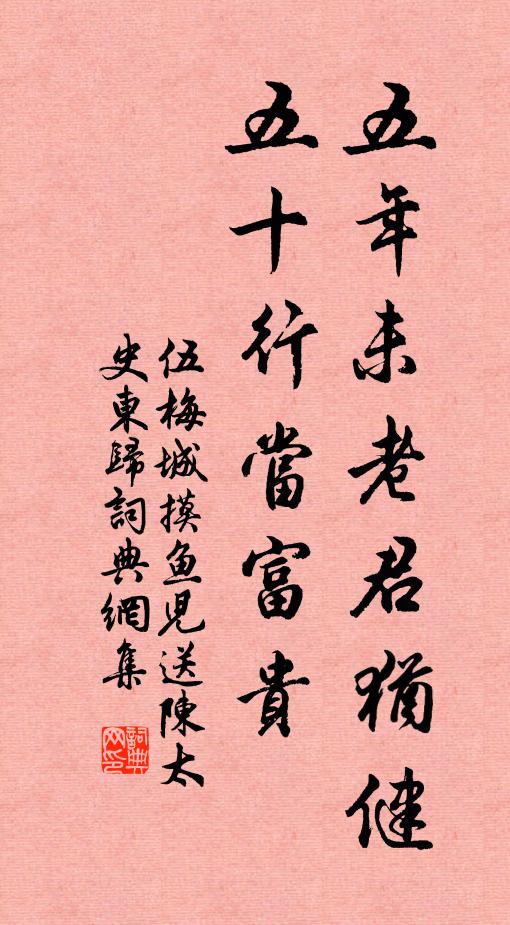 五年未老君猶健
五十行當富貴
伍梅城摸魚児送陳太
史東歸詞典網集
詞典网印